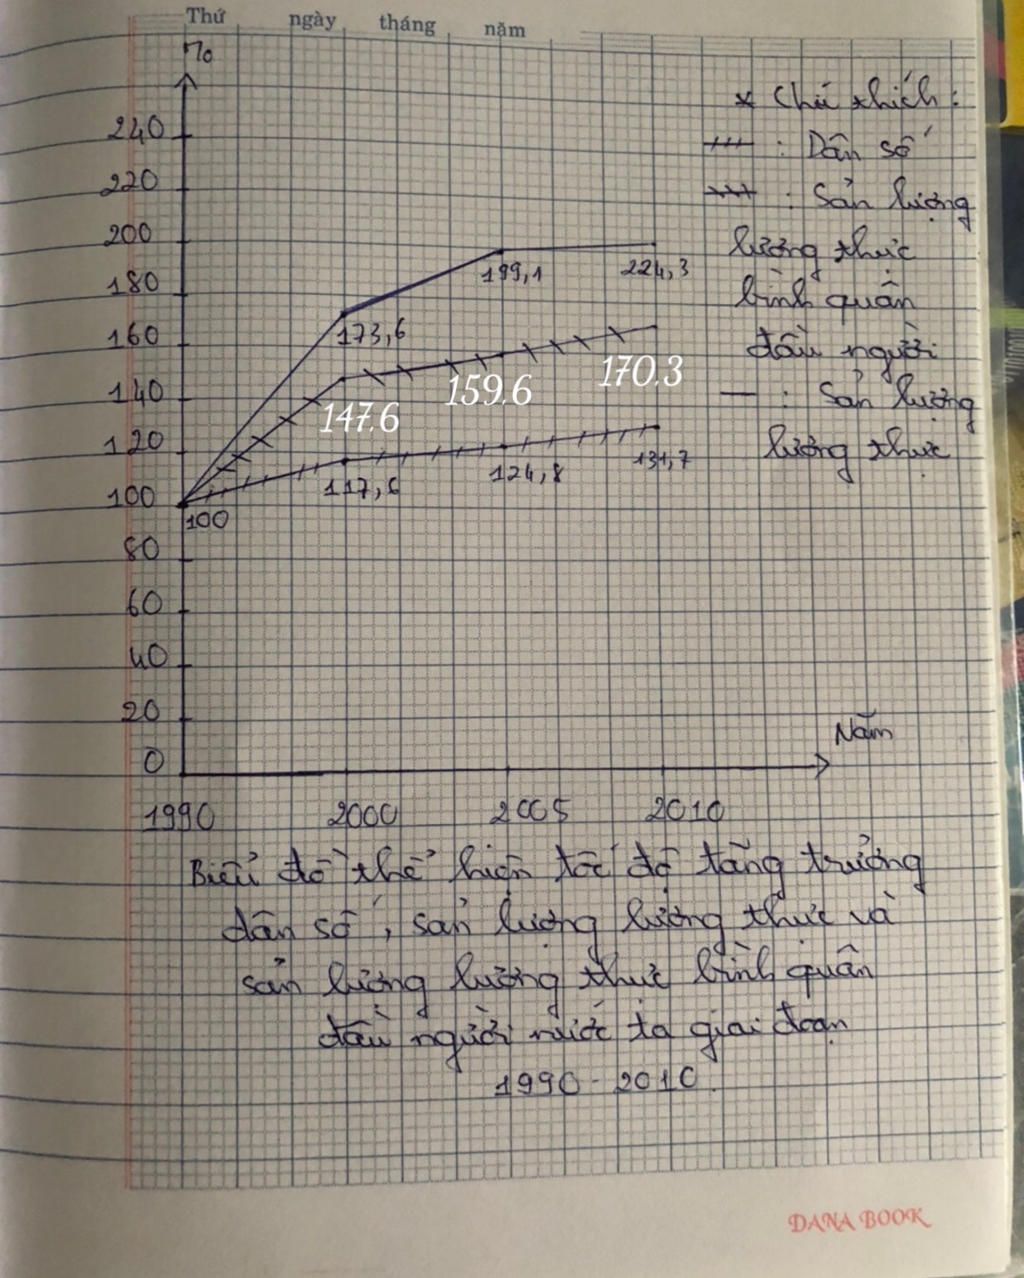 Thứ ngày tháng năm
%
240
220
200
180
160
140
120
100
80
60
40
20
0
* Chú thích:
: Dân số
: Sản lượng
lương thực
bình quân
đầu người
: Sản lượng
lương thực
199,1
224,3
173,6
170.3
159.6
147.6
131,7
124,8
117,6
100
Năm
1990 2000 2005 2010
Biểu đồ thể hiện tốc độ tăng trưởng
dân số, sản lượng lương thực và
sản lượng lương thực bình quân
đầu người nước ta giai đoạn
1990 - 2010.
DANA BOOK